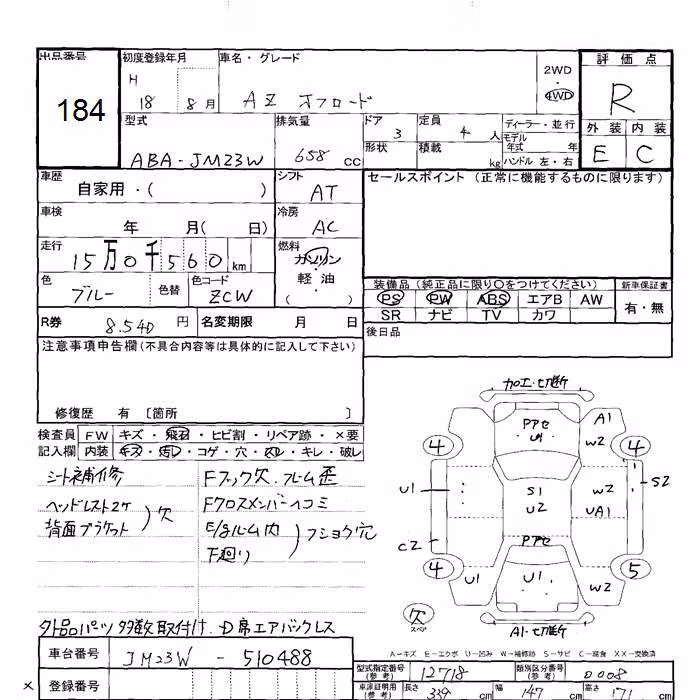 出品番号
184
初度登録年月
H 18 8月
車名・グレード
AZ オフロード
2WD
・
4WD
評価点
R
外装 内装
E C
型式
ABA-JM23W
排気量
658 cc
ドア
3
定員
4 人
ディーラー・並行
モデル
年式 年
形状
積載 kg
ハンドル 左・右
車歴
自家用・( )
シフト
AT
セールスポイント (正常に機能するものに限ります)
車検
年 月( 日)
冷房
AC
走行
15万0千560 km
燃料
ガソリン
・
軽油
( )
色
ブルー
色替
色コード
ZCW
装備品 (純正品に限り○をつけてください)
新車保証書
PS PW ABS エアB AW
有・無
SR ナビ TV カワ
R券 8.540 円
名変期限 月 日
後日品
注意事項申告欄 (不具合内容等は具体的に記入して下さい)
修復歴 有 〔箇所 〕
検査員 FW キズ・飛石・ヒビ割・リペア跡・×要
記入欄 内装 キズ・汚レ・コゲ・穴・スレ・キレ・破レ
シート補修
ヘッドレスト2ケ
背面ブラケット
)欠
Fフック欠.フレーム歪
Fクロスメンバーヘコミ
E/gルーム内
下廻り
)フショク穴
外品パーツ多数取付け.D席エアバックレス
加工・切断
Pアセ
U1
A1
W2
4
4
U1
S1
U2
W2
UA1
S2
C2
Pアセ
4
5
U1
U1
W2
欠
スペア
A1・切断
A-キズ E-エクボ U-凹み W-補修跡 S-サビ C-腐食 XX-交換済
車台番号
JM23W - 510488
型式指定番号
(参考)
12718
類別区分番号
(参考)
0008
×
登録番号
車庫証明用
(参考)
長さ
339 cm
幅
147 cm
高さ
171 cm